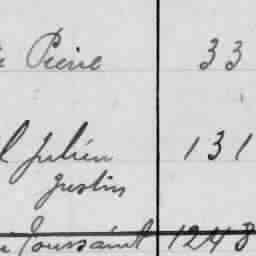 Pierre 33
Julien 131
Justin
Toussaint 1248